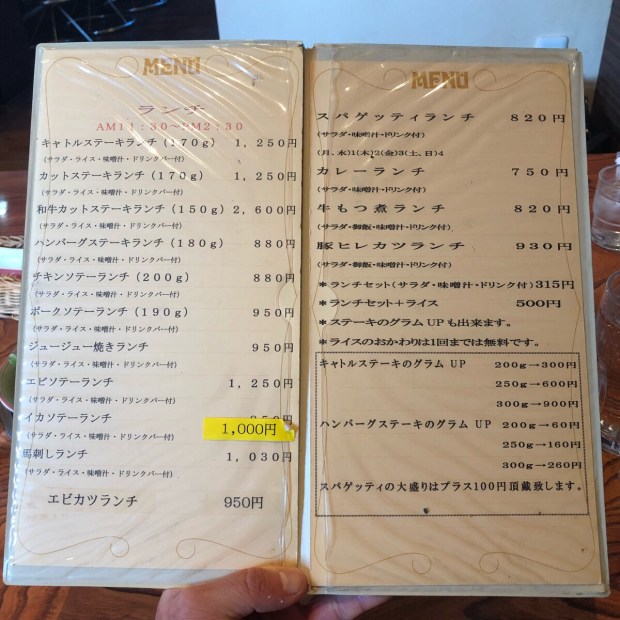 MENU
ランチ
AM11:30〜PM2:30
キャトルステーキランチ(170g) 1,250円
(サラダ・ライス・味噌汁・ドリンクバー付)
カットステーキランチ(170g) 1,250円
(サラダ・ライス・味噌汁・ドリンクバー付)
和牛カットステーキランチ(150g) 2,600円
(サラダ・ライス・味噌汁・ドリンクバー付)
ハンバーグステーキランチ(180g) 880円
(サラダ・ライス・味噌汁・ドリンクバー付)
チキンソテーランチ(200g) 880円
(サラダ・ライス・味噌汁・ドリンクバー付)
ポークソテーランチ(190g) 950円
(サラダ・ライス・味噌汁・ドリンクバー付)
ジュージュー焼きランチ 950円
(サラダ・ライス・味噌汁・ドリンクバー付)
エビソテーランチ 1,250円
(サラダ・ライス・味噌汁・ドリンクバー付)
イカソテーランチ
1,000円
(サラダ・ライス・味噌汁・ドリンクバー付)
馬刺しランチ 1,030円
(サラダ・ライス・味噌汁・ドリンクバー付)
エビカツランチ 950円
MENU
スパゲッティランチ 820円
(サラダ・味噌汁・ドリンク付)
(月、水)1(木)2(金)3(土、日)4
カレーランチ 750円
(サラダ・味噌汁・ドリンク付)
牛もつ煮ランチ 820円
(サラダ・御飯・味噌汁・ドリンク付)
豚ヒレカツランチ 930円
(サラダ・御飯・味噌汁・ドリンク付)
*ランチセット(サラダ・味噌汁・ドリンク付)315円
*ランチセット+ライス 500円
*ステーキのグラムUPも出来ます。
*ライスのおかわりは1回までは無料です。
キャトルステーキのグラム UP 200g→300円
250g→600円
300g→900円
ハンバーグステーキのグラム UP 200g→60円
250g→160円
300g→260円
スパゲッティの大盛りはプラス100円頂戴致します。